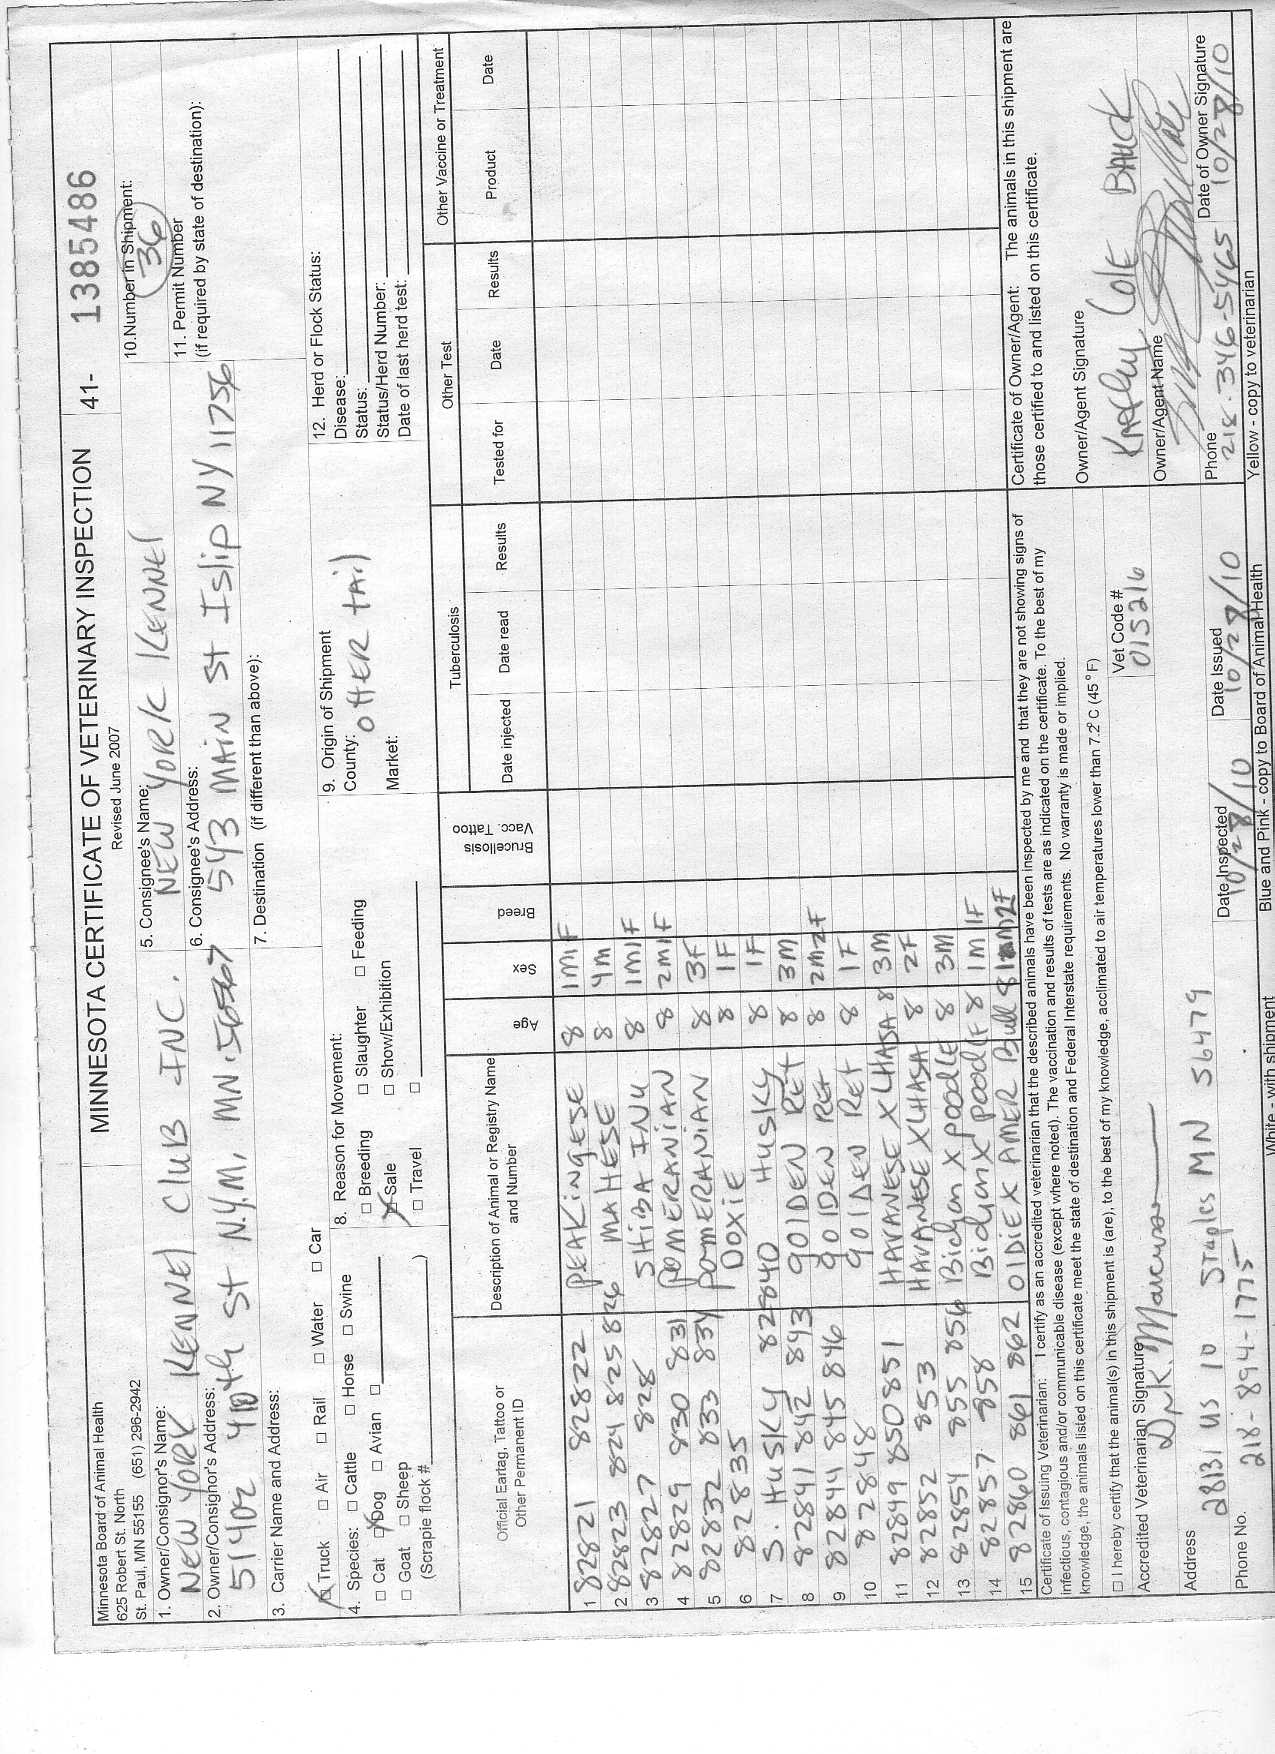 MINNESOTA CERTIFICATE OF VETERINARY INSPECTION 41- 1385486
Revised June 2007
Minnesota Board of Animal Health
625 Robert St. North
St. Paul, MN 55155 (651) 296-2942
1. Owner/Consignor's Name:
NEW YORK KENNEl Club INC.
2. Owner/Consignor's Address:
51402 410th St N.Y.M. MN. 56567
3. Carrier Name and Address:
5. Consignee's Name:
NEW YORK KENNEl
6. Consignee's Address:
543 MAiN St Islip NY 11756
7. Destination (if different than above):
10.Number in Shipment:
36
11. Permit Number
(if required by state of destination):
Truck Air Rail Water Car
4. Species: Cattle Horse Swine
Cat Dog Avian
Goat Sheep
(Scrapie flock # )
8. Reason for Movement:
Breeding Slaughter Feeding
Sale Show/Exhibition
Travel
9. Origin of Shipment
County: OttER tAil
Market:
12. Herd or Flock Status:
Disease:
Status:
Status/Herd Number:
Date of last herd test:
Official Eartag, Tattoo or
Other Permanent ID
Description of Animal or Registry Name
and Number
Age
Sex
Breed
Brucellosis
Vacc. Tattoo
Tuberculosis
Date injected Date read Results
Other Test
Tested for Date Results
Other Vaccine or Treatment
Product Date
1 82821 82822 PEAKiNgESE 8 1M1F
2 82823 824 825 826 MAHESE 8 4M
3 82827 828 SHibA INU 8 1M1F
4 82829 830 831 POMERANiAN 8 2M1F
5 82832 833 834 POMERANiAN 8 3F
6 82835 DOXiE 8 1F
7 S. HUSKY 82840 HUSKY 8 1F
8 82841 842 843 gOlDEN REt 8 3M
9 82844 845 846 gOlDEN REt 8 2M2F
10 82848 gOlDEN REt 8 1F
11 82849 850 851 HAVANESE X LHASA 8 3M
12 82852 853 HAVANESE X LHASA 8 2F
13 82854 855 856 Bichon X poodlE 8 3M
14 82857 858 Bichon X poodlE 8 1M 1F
15 82860 861 862 OlDiE X AMER Bull 8 1M2F
Certificate of Issuing Veterinarian: I certify as an accredited veterinarian that the described animals have been inspected by me and that they are not showing signs of
infectious, contagious and/or communicable disease (except where noted). The vaccination and results of tests are as indicated on the certificate. To the best of my
knowledge, the animals listed on this certificate meet the state of destination and Federal Interstate requirements. No warranty is made or implied.
I hereby certify that the animal(s) in this shipment is (are), to the best of my knowledge, acclimated to air temperatures lower than 7.2° C (45° F)
Accredited Veterinarian Signature
Vet Code #
015216
Address
28131 US 10 Staples MN 56479
Phone No.
218-894-1775
Date Inspected
10/28/10
Date Issued
10/28/10
Certificate of Owner/Agent: The animals in this shipment are
those certified to and listed on this certificate.
Owner/Agent Signature
KAthy ColE BAUCK
Owner/Agent Name
Phone
218-346-5465
Date of Owner Signature
10/28/10
White - with shipment Blue and Pink - copy to Board of Animal Health Yellow - copy to veterinarian